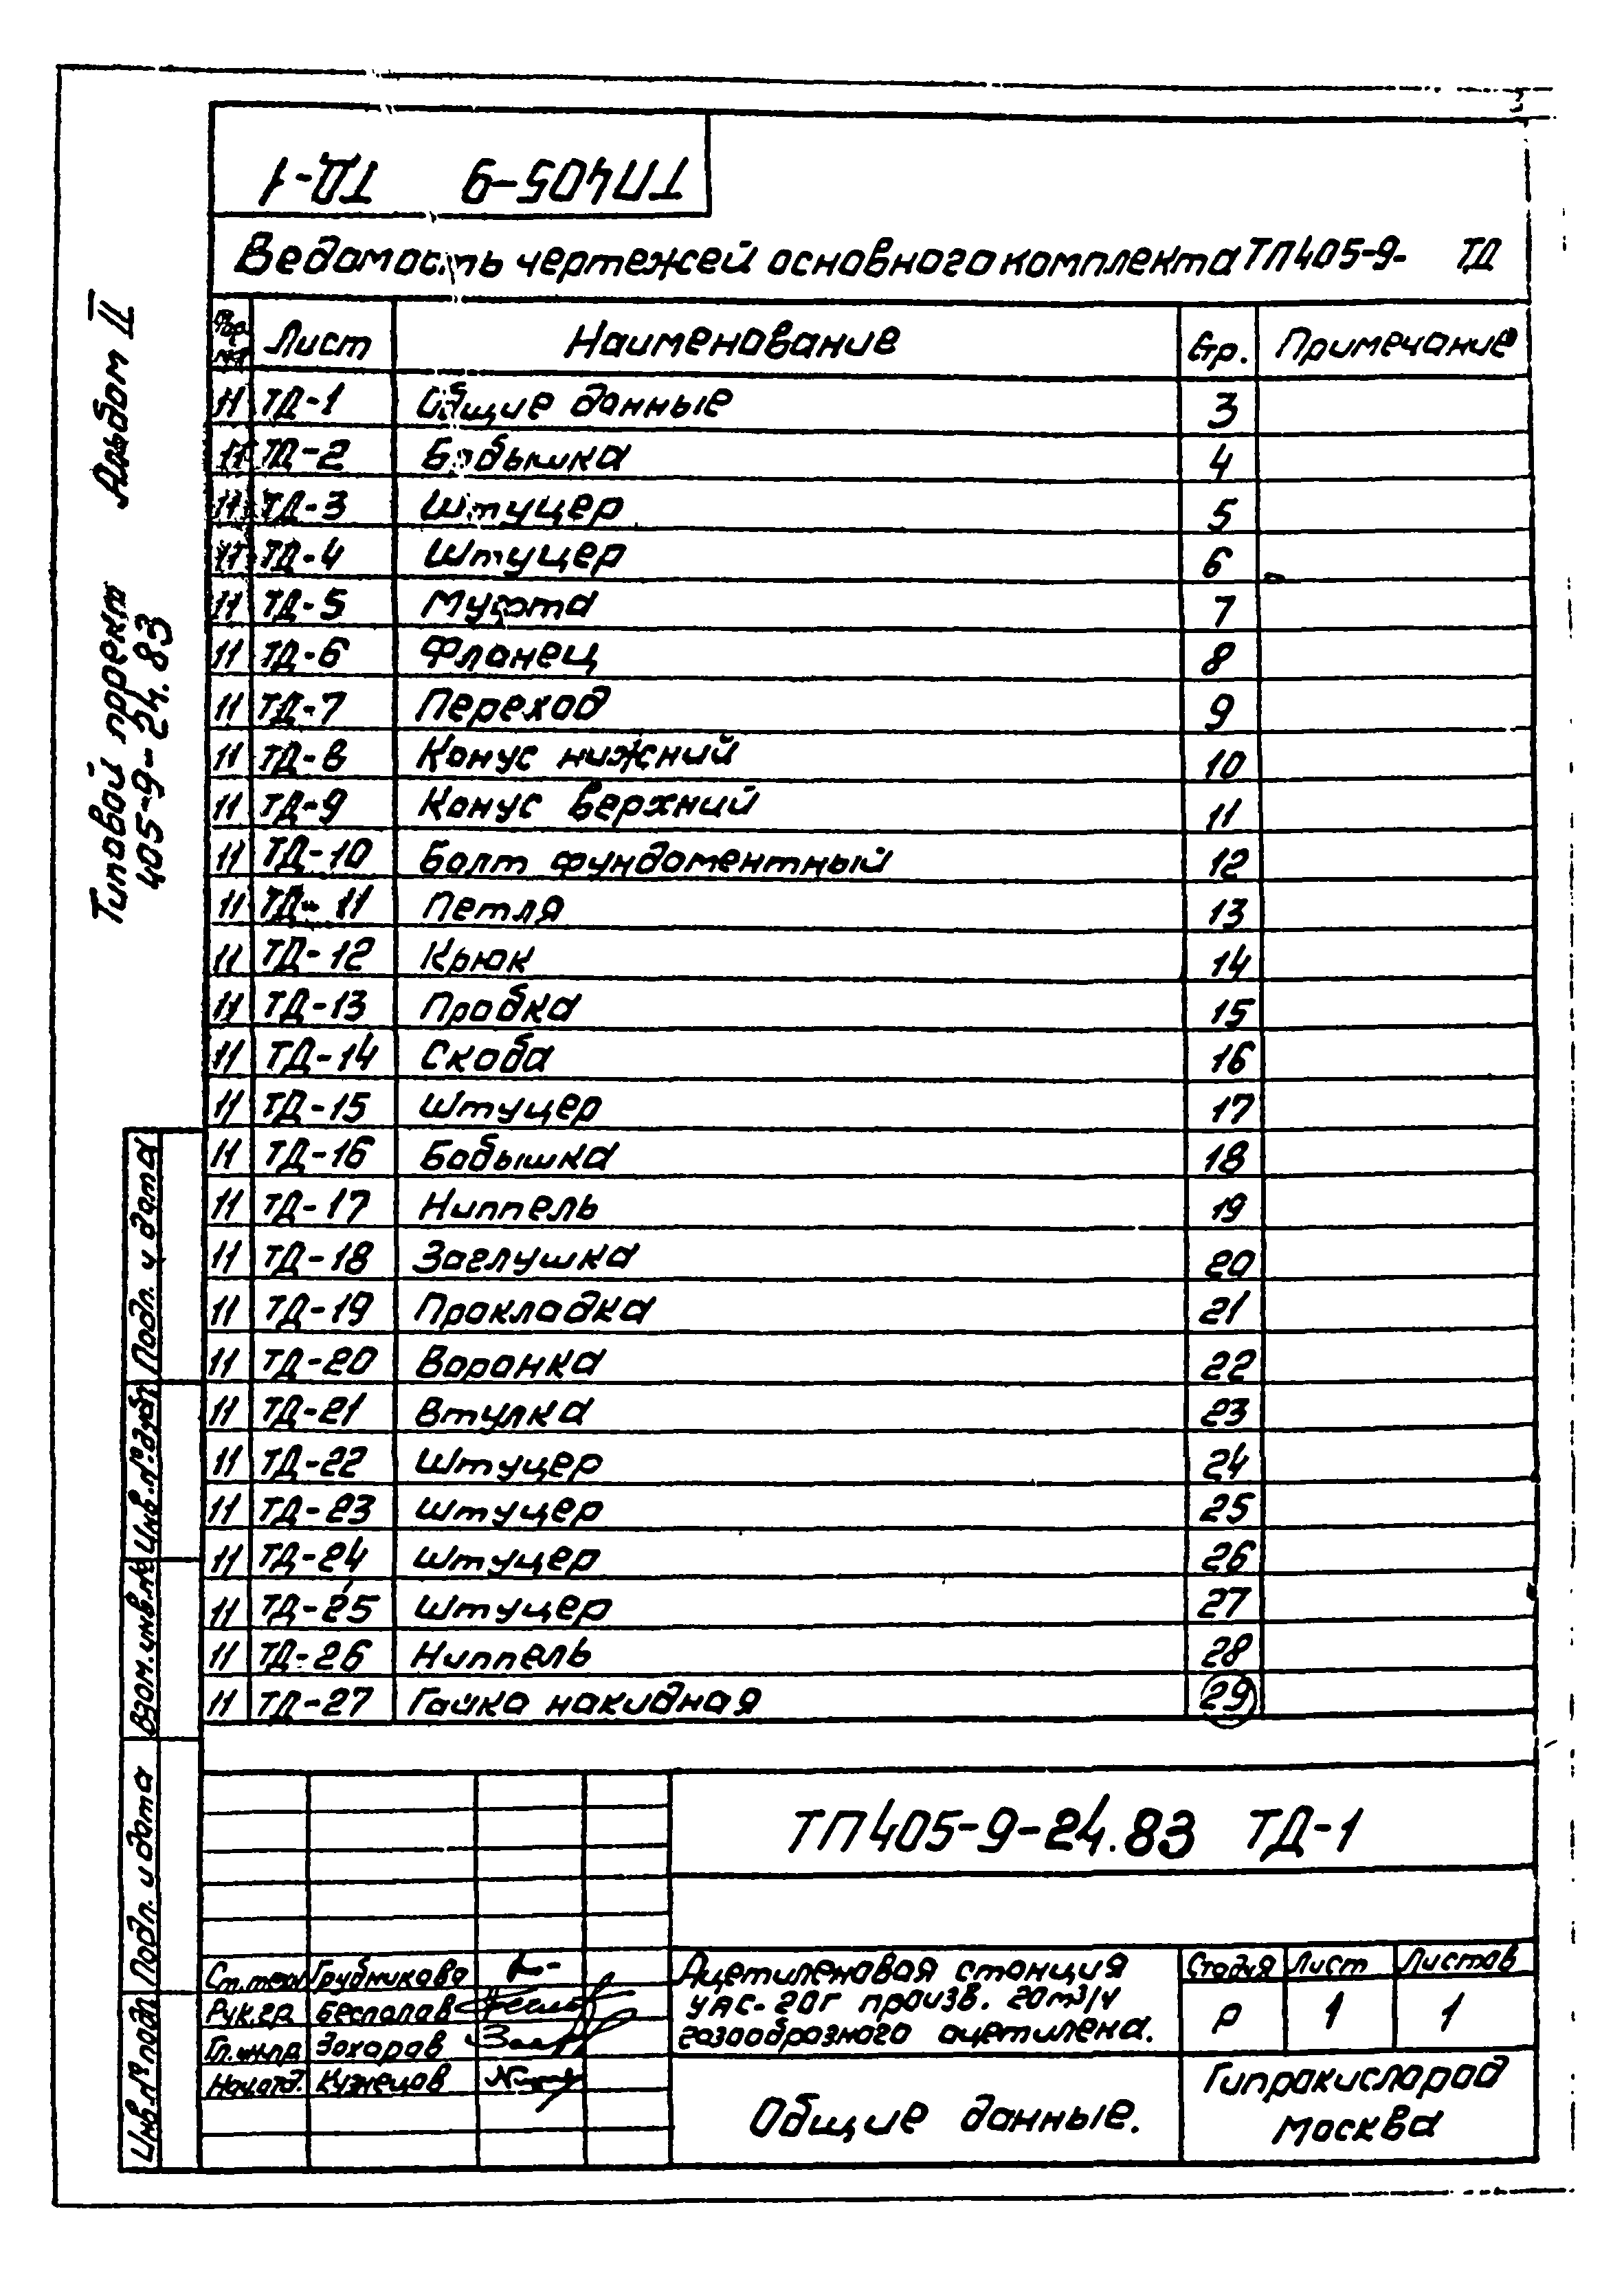 ТП405-9 ТД-1
Ведомость чертежей основного комплекта ТП405-9- ТД
Формат Лист Наименование Стр. Примечание
11 ТД-1 Общие данные 3
11 ТД-2 Бобышка 4
11 ТД-3 Штуцер 5
11 ТД-4 Штуцер 6
11 ТД-5 Муфта 7
11 ТД-6 Фланец 8
11 ТД-7 Переход 9
11 ТД-8 Конус нижний 10
11 ТД-9 Конус верхний 11
11 ТД-10 Болт фундаментный 12
11 ТД-11 Петля 13
11 ТД-12 Крюк 14
11 ТД-13 Пробка 15
11 ТД-14 Скоба 16
11 ТД-15 Штуцер 17
11 ТД-16 Бобышка 18
11 ТД-17 Ниппель 19
11 ТД-18 Заглушка 20
11 ТД-19 Прокладка 21
11 ТД-20 Воронка 22
11 ТД-21 Втулка 23
11 ТД-22 Штуцер 24
11 ТД-23 Штуцер 25
11 ТД-24 Штуцер 26
11 ТД-25 Штуцер 27
11 ТД-26 Ниппель 28
11 ТД-27 Гайка накидная 29
Альбом II
Типовой проект
405-9-24.83
Подп. и дата
Инв.№ дубл
Взам.инв.№
Подп. и дата
Инв.№ подл
ТП405-9-24.83 ТД-1
Ст.техн Трубникова
Рук.гр. Беспалов
Гл.инж.пр Захаров
Нач.отд. Кузнецов
Ацетиленовая станция
УАС-20г произв. 20м³/ч
газообразного ацетилена.
Стадия Лист Листов
Р 1 1
Общие данные.
Гипрокислород
Москва